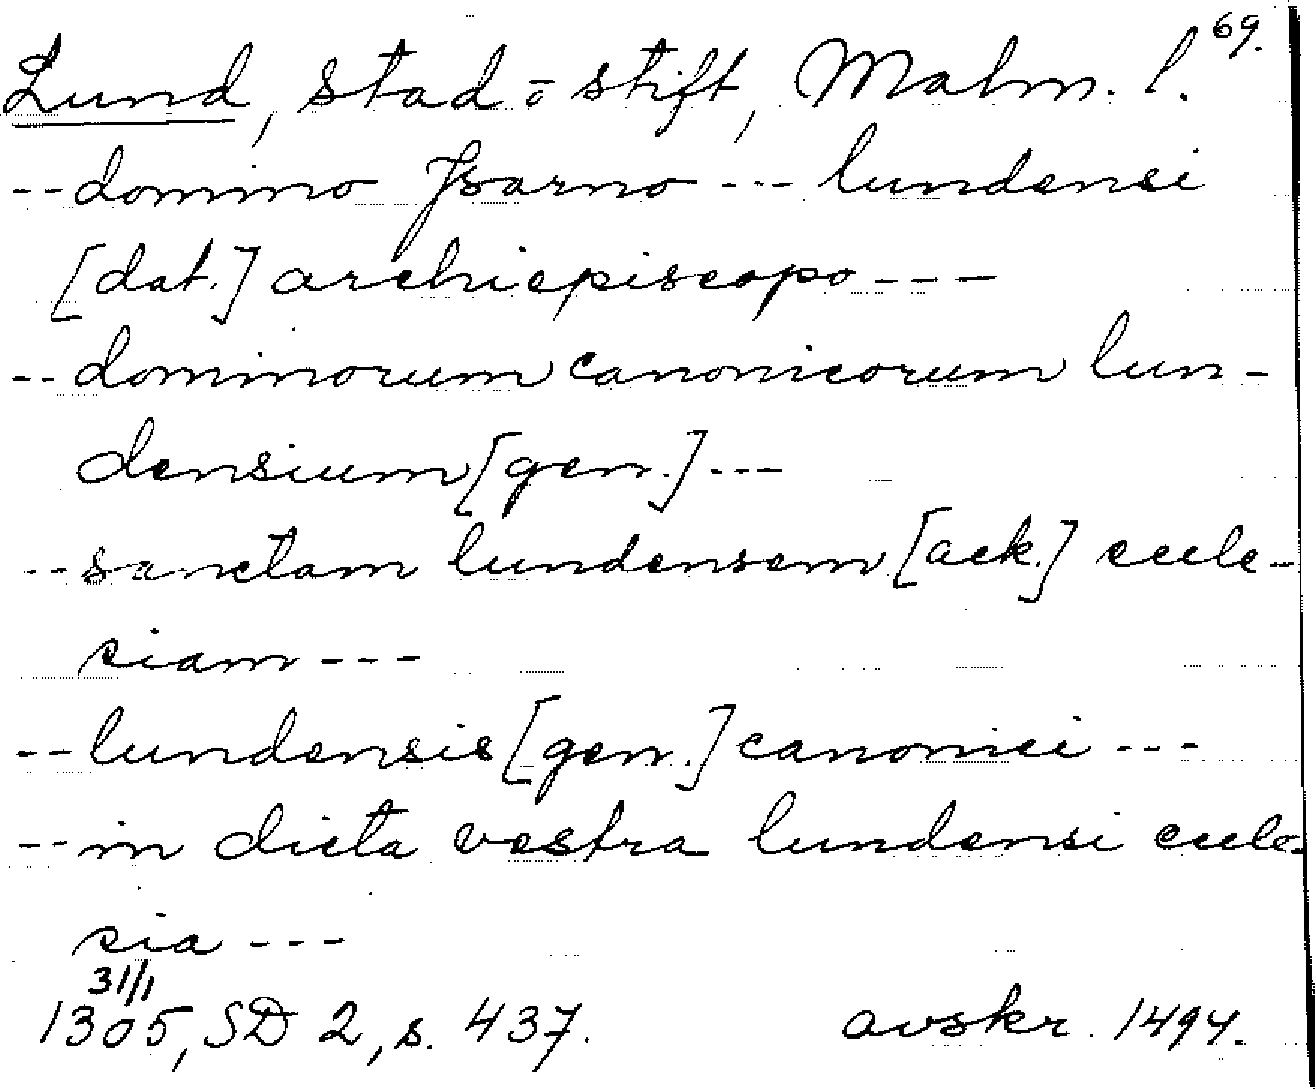 69.
Lund, stad o stift, Malm. l.
-- domino Jsarno --- lundensi
[dat.] archiepiscopo ---
-- dominorum canonicorum lun-
densium [gen.] ---
-- sanctam lundensem [ack.] eccle-
siam ---
-- lundensis [gen.] canonici ---
-- in dicta vestra lundensi eccle-
sia ---
31/1
1305, SD 2, s. 437. avskr. 1494.